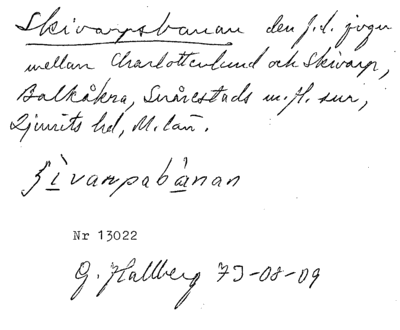 Skivarpsbanan den f.d. jvgn
mellan Charlottenlund och Skivarp,
Balkåkra, Snårestads m.fl. snr,
Ljunits hd, M. län.
ʃìvarpabànan
Nr 13022
G. Hallberg 73-08-09